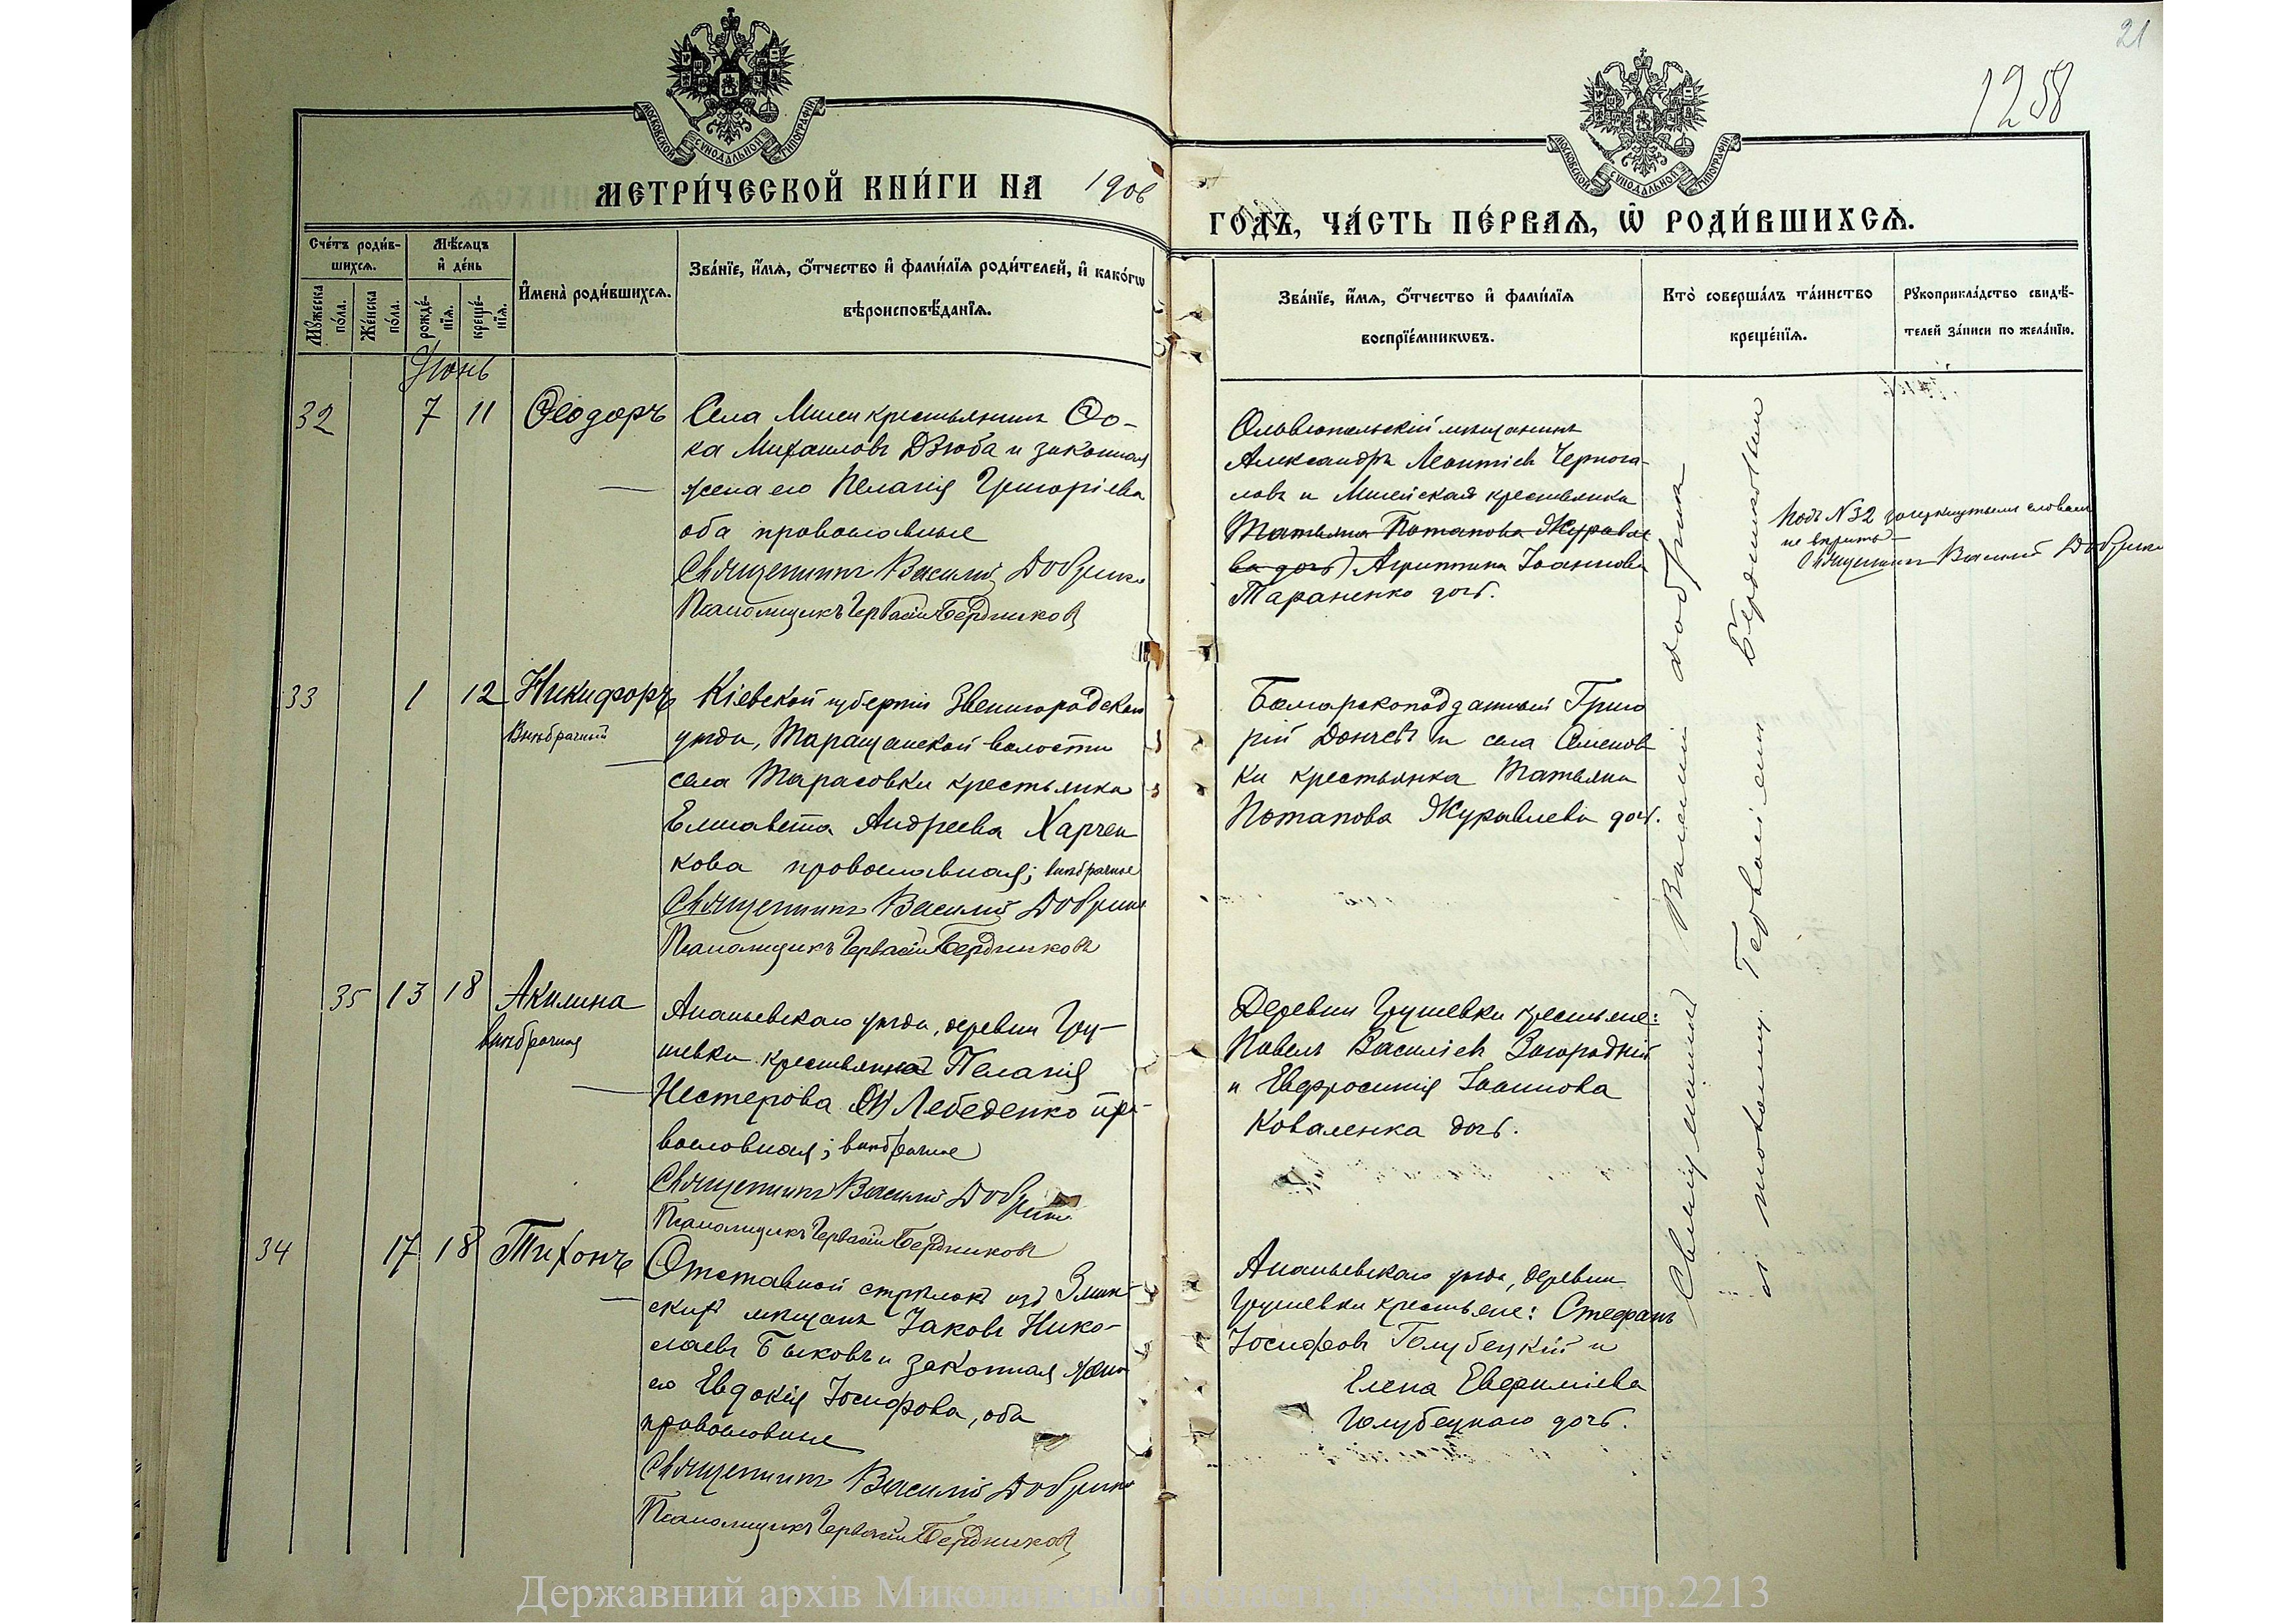 21
1258
МОСКОВСКОЙ СУНОДАЛЬНОЙ ТИПОГРАФІИ
МОСКОВСКОЙ СУНОДАЛЬНОЙ ТИПОГРАФІИ
МЕТРИ́ЧЕСКОЙ КНИ́ГИ НА 1906
ГО́ДЪ, ЧА́СТЬ ПЕ́РВАѦ, Ѡ҆ РОДИ́ВШИХСѦ.
Сче́тъ роди́в-
шихсѧ.
Мꙋ́жеска по́ла.
Же́нска по́ла.
Мѣ́сѧцъ
и҆ де́нь
рожде́-нїѧ.
креще́-нїѧ.
И҆мена̀ роди́вшихсѧ.
Зва́нїе, и҆́мѧ, ѻ҆́тчество и҆ фами́лїѧ роди́телей, и҆ како́гѡ
вѣроисповѣ́данїѧ.
Зва́нїе, и҆́мѧ, ѻ҆́тчество и҆ фами́лїѧ
воспрїе́мникѡвъ.
Кто̀ соверша́лъ та́инство
креще́нїѧ.
Рꙋкоприкла́дство свидѣ́-
телей за́писи по жела́нїю.
Іюнь
32 7 11 Ѳеодоръ
Села Мигеи крестьянинъ Ѳо-
ка Михаиловъ Дзюба и законная
жена его Пелагія Григоріева
оба православные
Священникъ Василій Добрик
Псаломщикъ Гервасій Бердниковъ
Ольвіопольскій мѣщанинъ
Александръ Леонтіевъ Чернога-
ловъ и Мигейская крестьянка
Татьяна Потапова Журавле
ва дочь) Агриппина Іоаннова
Тараненко дочь.
Подъ N 32 зачеркнутымъ словамъ
не вѣрить
Священникъ Василій Добрик
33 1 12 Никифоръ
Внѣбрачный
Кіевской губерніи Звенигородскаго
уѣзда, Таращанской волости
села Тарасовки крестьянка
Елисавета Андреева Харчен
кова православная; внѣбрачне
Священникъ Василій Добрик
Псаломщикъ Гервасій Бердниковъ
Болгарскоподданный Григо
рій Дончевъ и села Семенов
ки крестьянка Татьяна
Потапова Журавлева дочь.
35 13 18 Акилина
внѣбрачная
Ананьевскаго уѣзда, деревни Гру-
шевки крестьянка Пелагія
Нестерова Лебеденко пра-
вославная; внѣбрачне
Священникъ Василій Добрик
Псаломщикъ Гервасій Бердниковъ
Деревни Грушевки крестьяне:
Павелъ Василіевъ Загородній
и Евфросинія Іоаннова
Коваленка дочь.
34 17 18 Тихонъ
Отставной стрѣлокъ изъ
скихъ мѣщанъ Іаковъ Нико-
лаевъ Быковъ и законная жена
его Евдокія Іосифова, оба
православные
Священникъ Василій Добрик
Псаломщикъ Гервасій Бердниковъ
Ананьевскаго уѣзда, деревни
Грушевки крестьяне: Стефанъ
Іосифовъ Голубецкій и
Елена Евфиміева
Голубецкаго дочь.
Священникъ Василій Добрик
и псаломщ. Гервасій Бердниковъ
Державний архів Миколаївської області, ф.484, оп.1, спр.2213